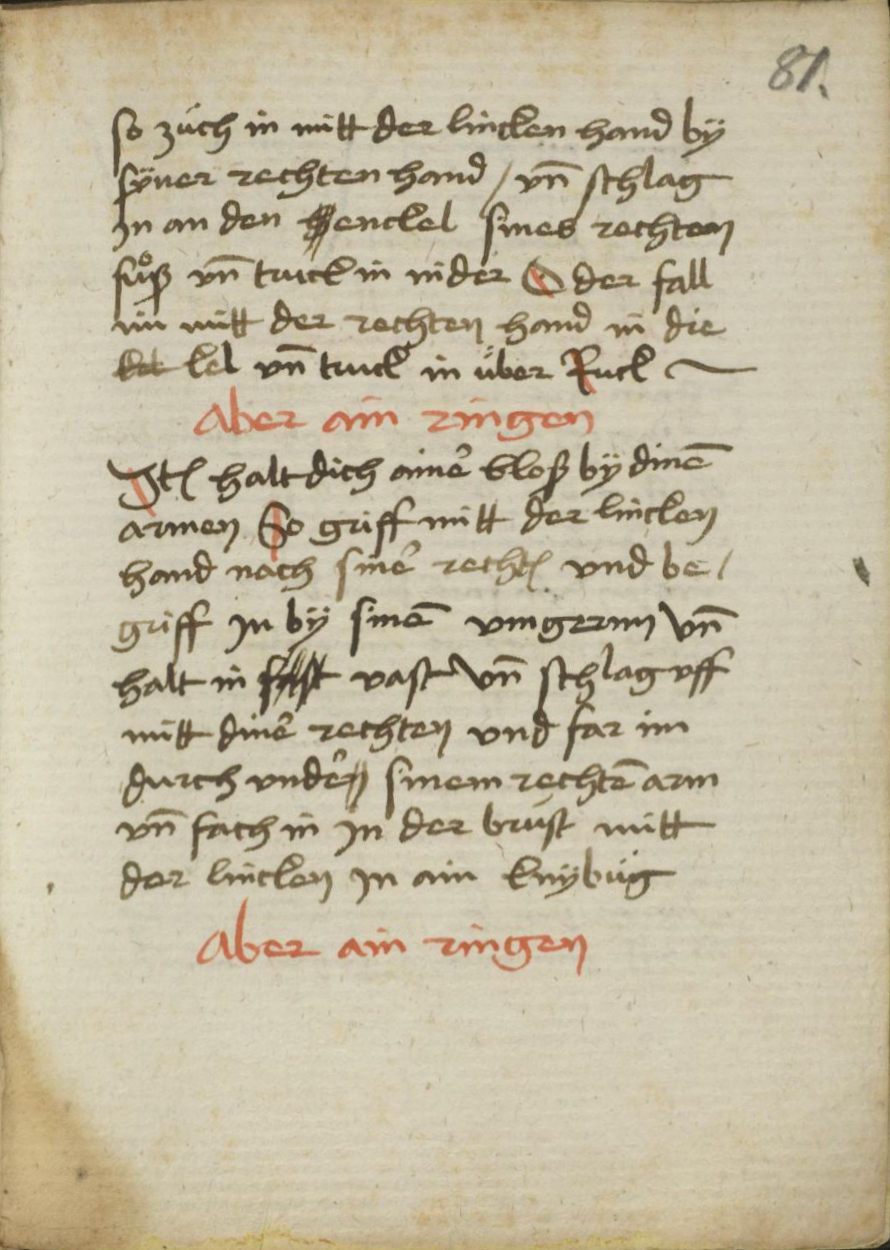 81.
so züch in mitt der lincken hand by
sÿner rechten hand / vn̄ schlag
In an den enckel sines rechten
fuͦß vn̄ truck in nider O der fall
im mitt der rechten hand in die
kel vn̄ truck in über Ruck
Aber ain ringen
Itꝭ halt dich ainẻ bloß bÿ dinē
armen So griff mitt der lincken
hand nach sinẻ rechtꝭ vnd be /
griff In bÿ sinē vingern vn̄
halt in vast vn̄ schlag vff
mitt dinẻ rechten vnd far im
durch vndẻ sinem rechtē arm
vn̄ fach in In der brust mitt
der lincken In ain knÿbüg
Aber ain ringen